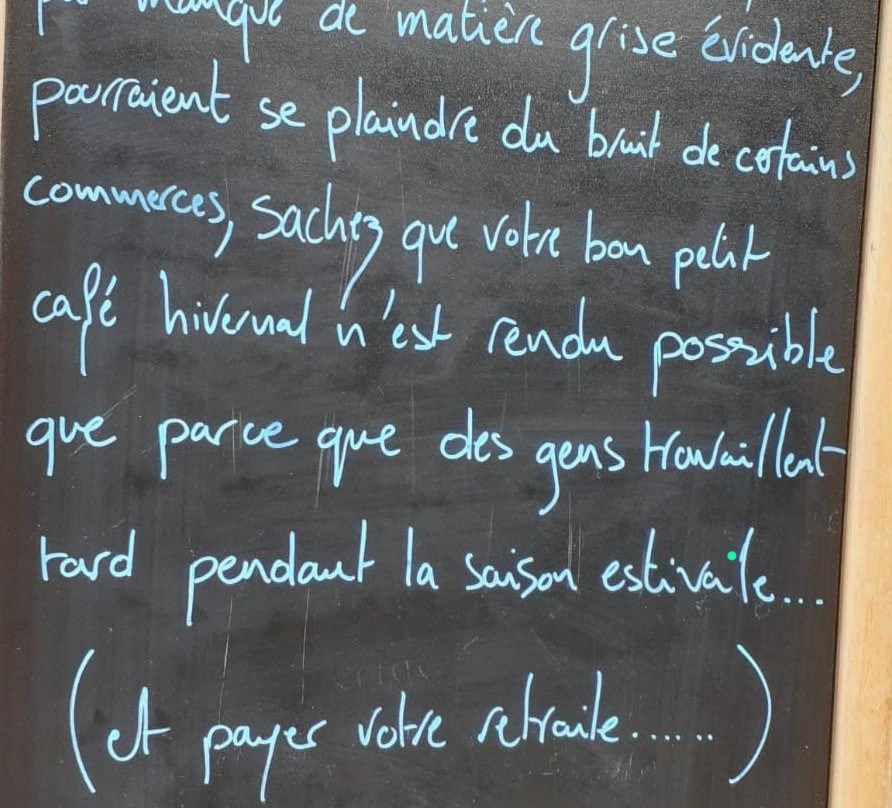 manque de matière grise évidente,
pourraient se plaindre du bruit de certains
commerces, sachez que votre bon petit
café hivernal n'est rendu possible
que parce que des gens travaillent
tard pendant la saison estivale...
(et payer votre retraite......)